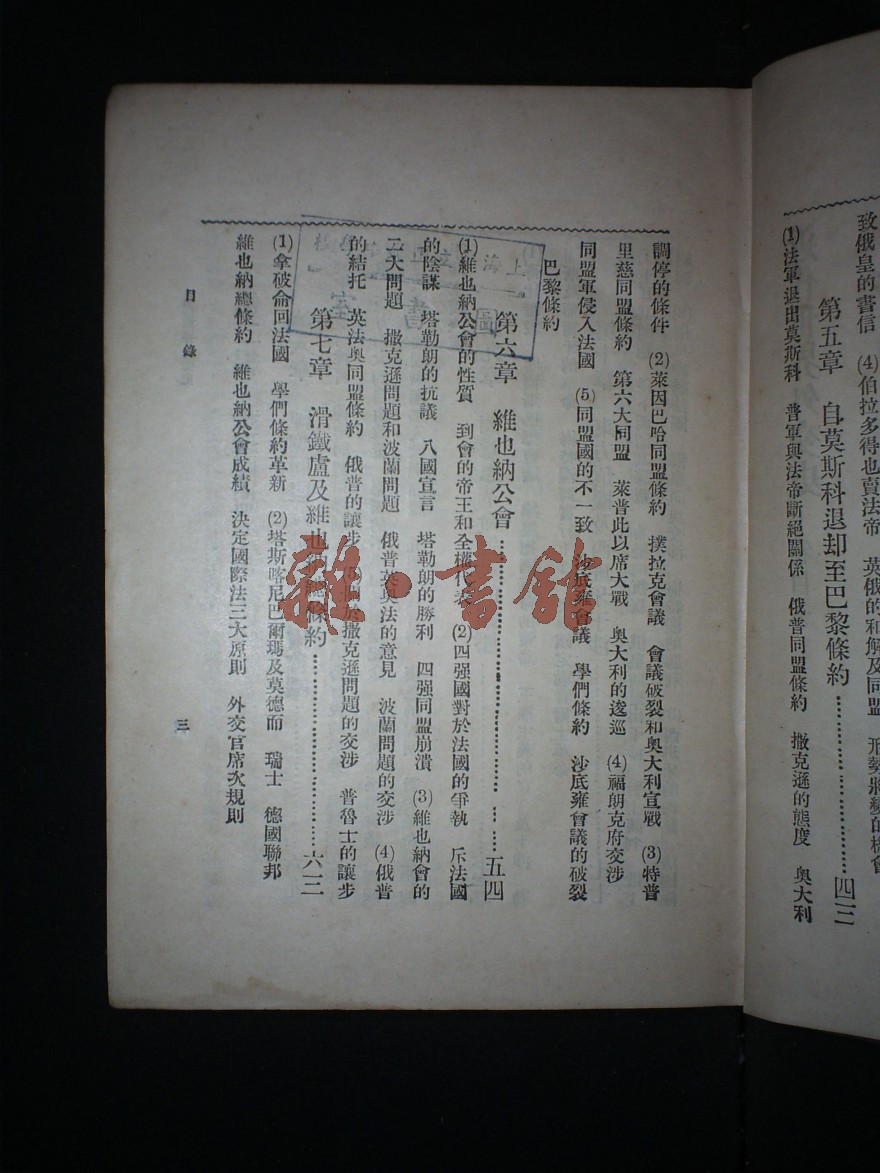 致俄皇的書信 (4)伯拉多得也賣法帝 英俄的和解及同盟 形勢將變的機會
第五章 自莫斯科退却至巴黎條約……………四三
(1)法軍退出莫斯科 普軍與法帝斷絕關係 俄普同盟條約 撒克遜的態度 奧大利
調停的條件 (2)萊因巴哈同盟條約 撲拉克會議 會議破裂和奧大利宣戰 (3)特普
里慈同盟條約 第六大同盟 萊普此以席大戰 奧大利的逡巡 (4)福朗克府交涉
同盟軍侵入法國 (5)同盟國的不一致 沙底雍會議 學們條約 沙底雍會議的破裂
巴黎條約
第六章 維也納公會……………五四
(1)維也納公會的性質 到會的帝王和全權代表 (2)四强國對於法國的爭執 斥法國
的陰謀 塔勒朗的抗議 八國宣言 塔勒朗的勝利 四强同盟崩潰 (3)維也納會的
二大問題 撒克遜問題和波蘭問題 俄普英奧法的意見 波蘭問題的交涉 (4)俄普
的結托 英法奧同盟條約 俄普的讓步 關於撒克遜問題的交涉 普魯士的讓步
第七章 滑鐵盧及維也納總條約……………六三
(1)拿破侖回法國 學們條約革新 (2)塔斯喀尼巴爾瑪及莫德而 瑞士 德國聯邦
維也納總條約 維也納公會成績 決定國際法三大原則 外交官席次規則
目錄
三
上海
圖書室
雜·書館